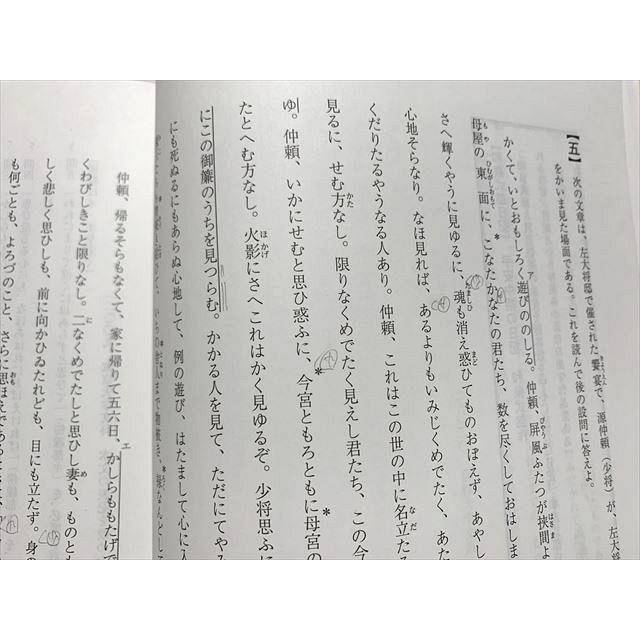 【五】 次の文章は、左大将邸で催された饗宴で、源仲頼(少将)が、左大
をかいま見た場面である。これを読んで後の設問に答えよ。
かくて、いとおもしろく遊びののしる。仲頼、屏風ふたつが挾間よ
母屋の東面に、こなたかなたの君たち、数を尽くしておはしま
さへ輝くやうに見ゆるに、魂も消え惑ひてものおぼえず、あやし
心地そらなり。なほ見れば、あるよりもいみじくめでたく、あた
くだりたるやうなる人あり。仲頼、これはこの世の中に名立たる
見るに、せむ方なし。限りなくめでたく見えし君たち、この今
ゆ。仲頼、いかにせむと思ひ惑ふに、今宮ともろともに母宮の
たとへむ方なし。火影にさへこれはかく見ゆるぞ。少将思ふに
にこの御簾のうちを見つらむ。かかる人を見て、ただにてやみ
にも死ぬるにもあらぬ心地して、例の遊び、はたまして心に入
仲頼、帰るそらもなくて、家に帰りて五六日、かしらももたげで
くわびしきこと限りなし。二なくめでたしと思ひし妻も、ものとも
しく悲しく思ひしも、前に向かひゐたれども、目にも立たず。身の
も何ごとも、よろづのこと、さらに思ほえで